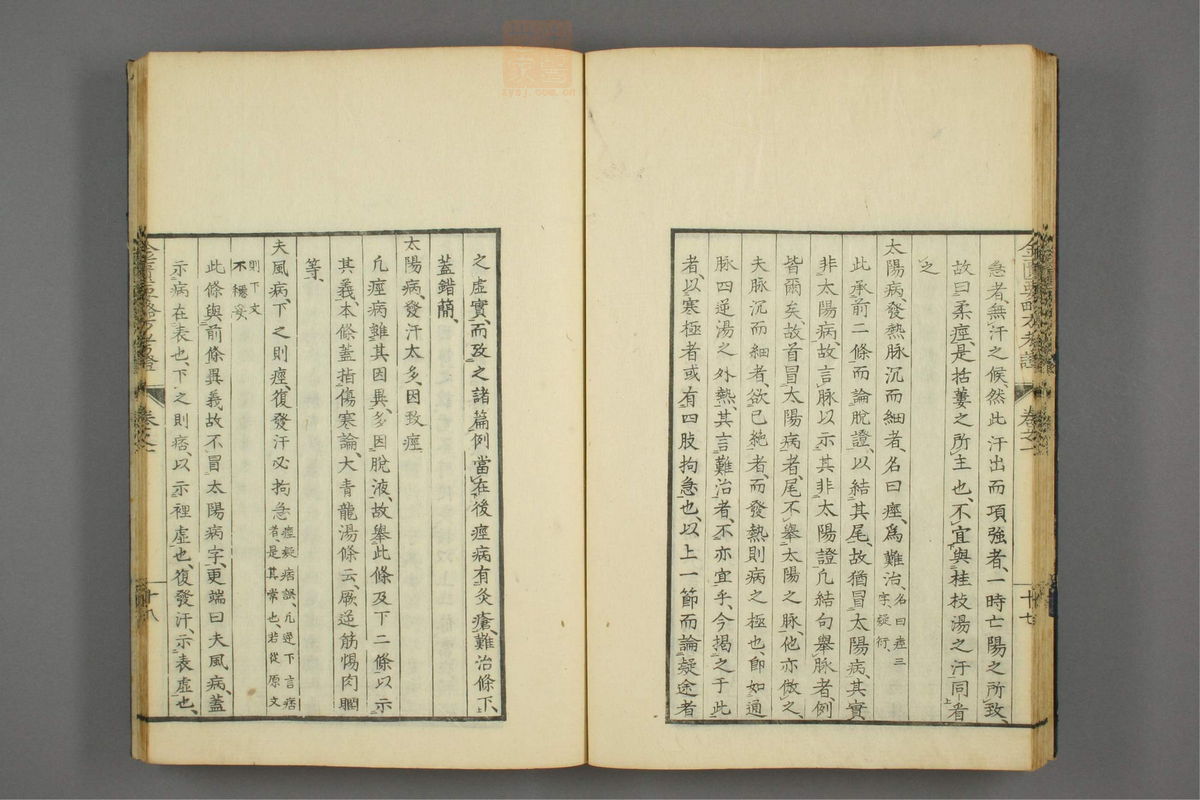 急者、無汗之候、然此汗出而項強者、一時亡陽之所致、
故曰柔痙、是括蔞之所主也、不宜與桂枝湯之汗同看
之
太陽病、發熱脉沉而細者、名曰痙、爲難治、名曰痙三字疑衍、
此承前二條而論脫證、以結其尾、故猶冒太陽病、其實
非太陽病、故言脉以示其非太陽證、凡結句擧脉者、例
皆爾矣、故首冒太陽病者、尾不擧太陽之脉、他亦倣之、
夫脉沉而細者、欲已絶者、而發熱則病之極也、卽如通
脉四逆湯之外熱、其言難治者、不亦宜乎、今揭之于此
者、以寒極者或有四肢拘急也、以上一節而論疑途者
十七
之虛實、而攷之諸篇例、當在後痙病有灸瘡、難治條下、
蓋錯簡、
太陽病、發汗太多、因致痙
凡痙病雖其因異、多因脫液、故擧此條及下二條、以示
其義、本條蓋指傷寒論、大青龍湯條云、厥逆筋惕肉瞤
等、
夫風病、下之則痙、復發汗必拘急痙疑痞誤、凡逆下言痞者、是其常也、若從原文
則下文不穩妥
此條與前條異義、故不冒太陽病字、更端曰夫風病、蓋
示病在表也、下之則痞、以示裡虛也、復發汗、示表虛也、
十八